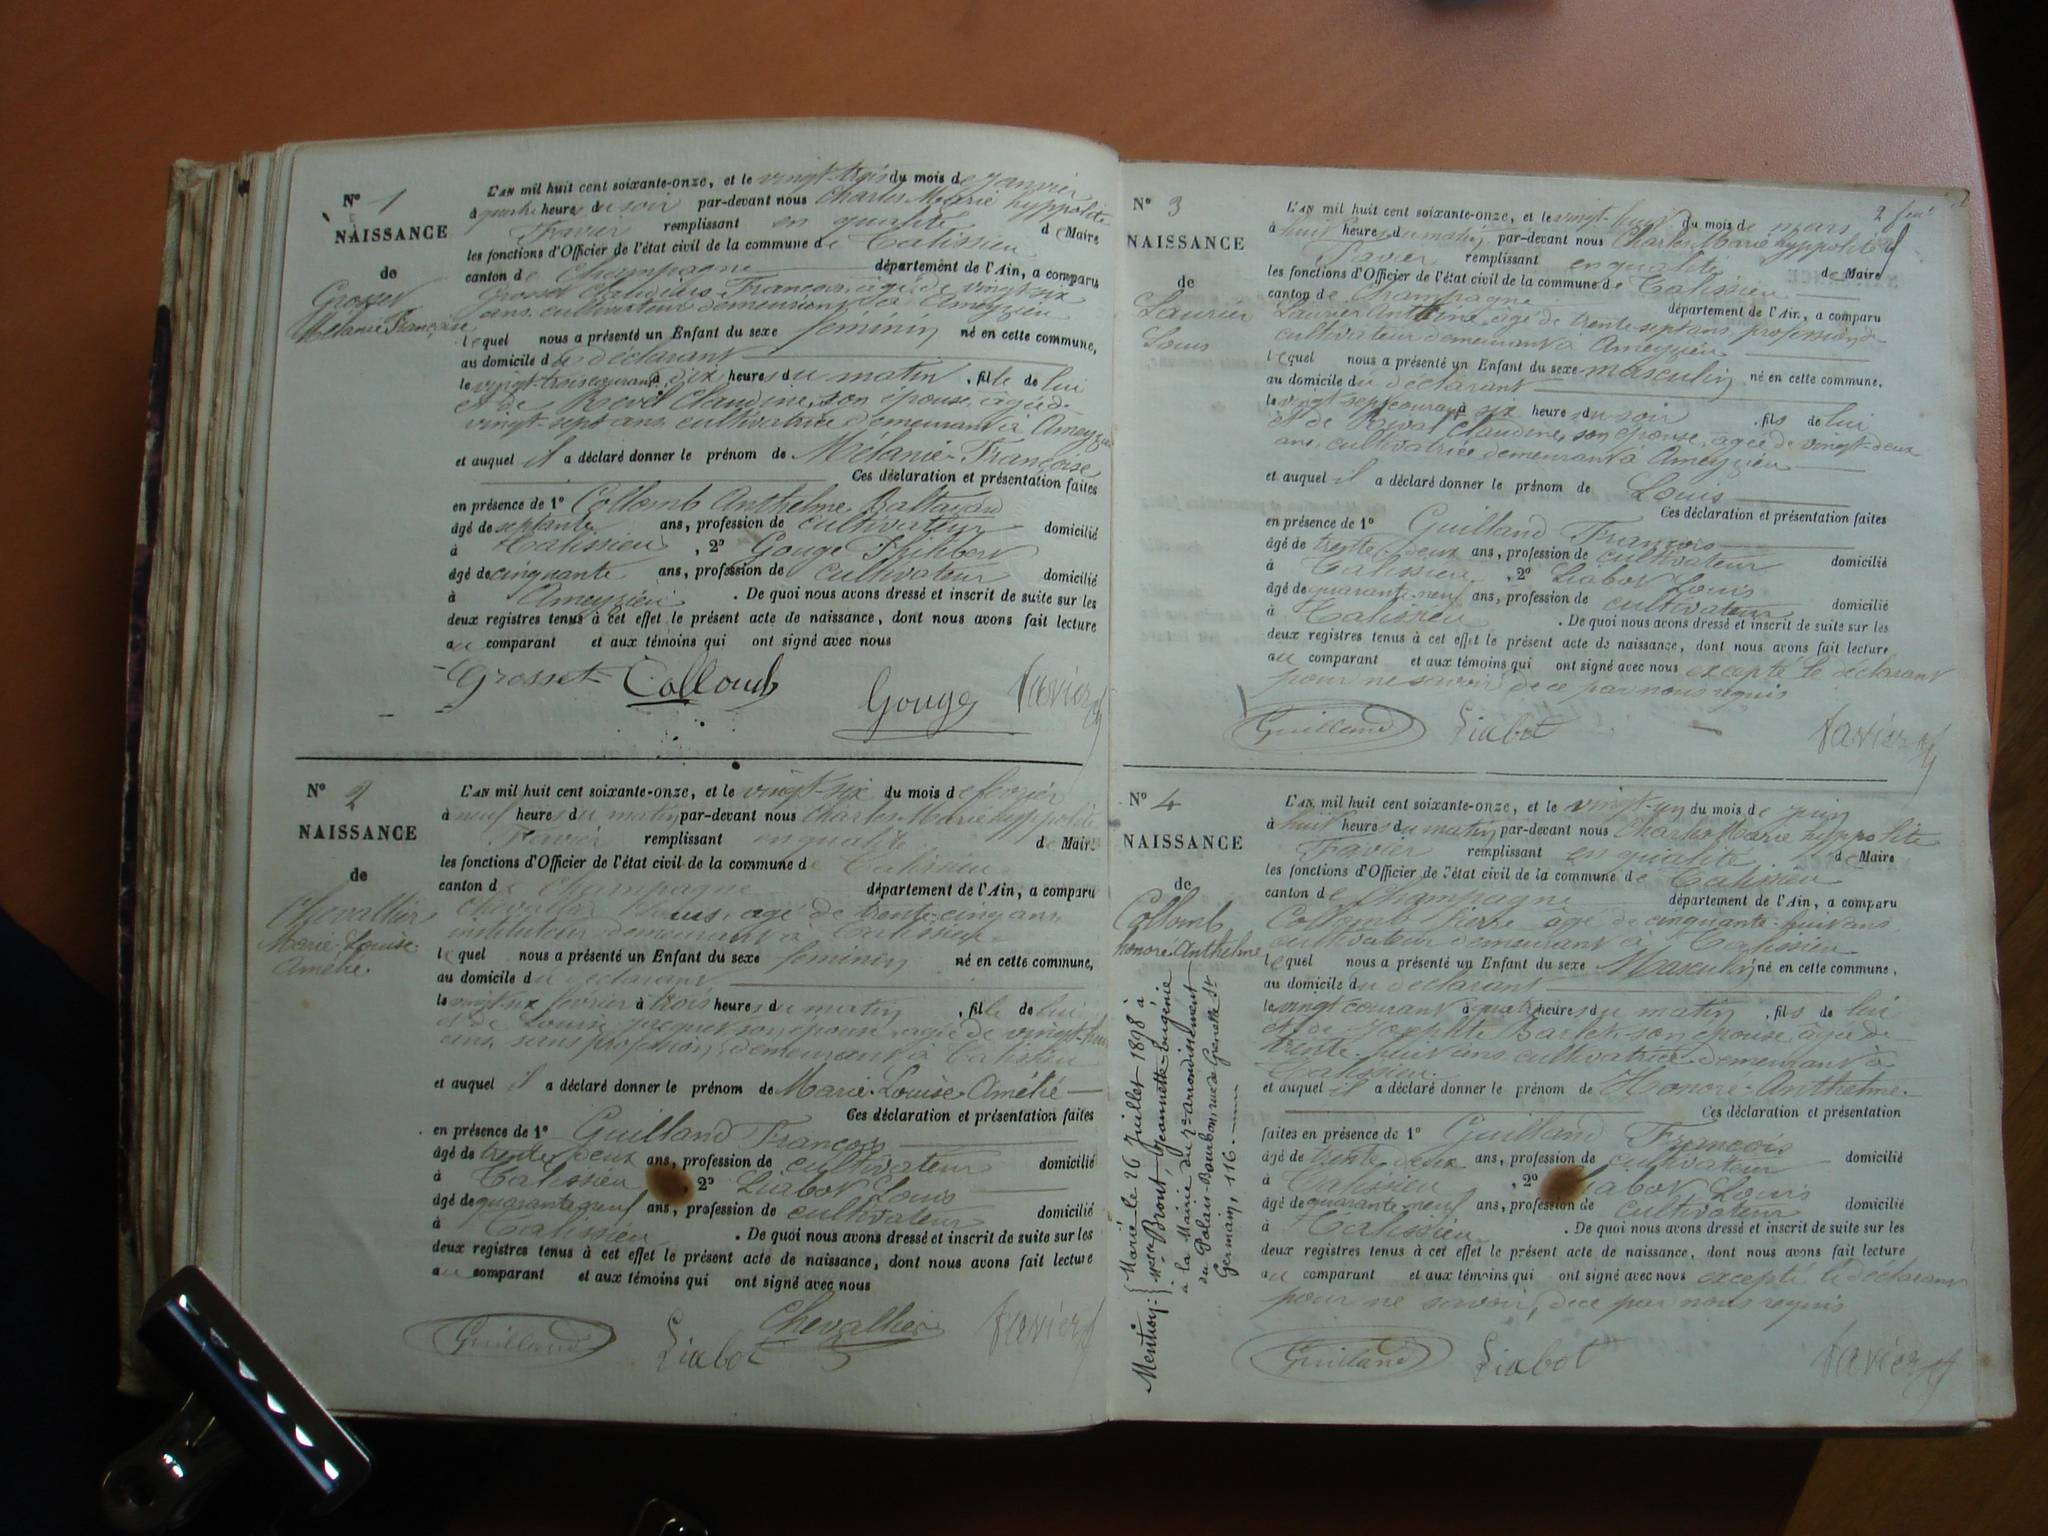 N° 1
NAISSANCE
de
Grosset
Mélanie Françoise
L'AN mil huit cent soixante-onze, et le vingt-trois du mois de janvier
à quatre heures du soir par-devant nous Charles Marie hyppolite
Favier remplissant en qualité de Maire
les fonctions d'Officier de l'état civil de la commune de Talissieu
canton de Champagne département de l'Ain, a comparu
Grosset François, âgé de vingt six
ans cultivateur demeurant à Ameyzieu
lequel nous a présenté un Enfant du sexe féminin né en cette commune,
au domicile du déclarant
le vingt-trois courant à dix heures du matin, fille de lui
et de Revel Claudine, son épouse, âgée de
vingt-sept ans, cultivatrice demeurant à Ameyzieu
et auquel il a déclaré donner le prénom de Mélanie-Françoise
Ces déclaration et présentation faites
en présence de 1° Collomb Anthelme Baltazard
âgé de septante ans, profession de cultivateur domicilié
à Talissieu, 2° Gouge Philibert
âgé de cinquante ans, profession de cultivateur domicilié
à Ameyzieu. De quoi nous avons dressé et inscrit de suite sur les
deux registres tenus à cet effet le présent acte de naissance, dont nous avons fait lecture
au comparant et aux témoins qui ont signé avec nous
Grosset Collomb Gouge Favier
N° 2
NAISSANCE
de
Chevallier
Marie-Louise-
Amélie
L'AN mil huit cent soixante-onze, et le vingt-six du mois de février
à neuf heures du matin par-devant nous Charles Marie hyppolite
Favier remplissant en qualité de Maire
les fonctions d'Officier de l'état civil de la commune de Talissieu
canton de Champagne département de l'Ain, a comparu
Chevallier âgé de trente-cinq ans
instituteur demeurant à Talissieu
lequel nous a présenté un Enfant du sexe féminin né en cette commune,
au domicile du déclarant
le vingt-six février à trois heures du matin, fille de lui
et de Louise son épouse, âgée de vingt-huit
ans, sans profession, demeurant à Talissieu
et auquel il a déclaré donner le prénom de Marie-Louise-Amélie
Ces déclaration et présentation faites
en présence de 1° Guilland François
âgé de trente deux ans, profession de cultivateur domicilié
à Talissieu 2° Liabot Louis
âgé de quarante neuf ans, profession de cultivateur domicilié
à Talissieu. De quoi nous avons dressé et inscrit de suite sur les
deux registres tenus à cet effet le présent acte de naissance, dont nous avons fait lecture
au comparant et aux témoins qui ont signé avec nous
Guilland Liabot Chevallier Favier
2
N° 3
NAISSANCE
de
Laurier
Louis
L'AN mil huit cent soixante-onze, et le vingt-huit du mois de mars
à huit heures du matin par-devant nous Charles Marie hyppolite
Favier remplissant en qualité de Maire
les fonctions d'Officier de l'état civil de la commune de Talissieu
canton de Champagne département de l'Ain, a comparu
Laurier Antoine, âgé de trente sept ans, profession de
cultivateur demeurant à Ameyzieu
lequel nous a présenté un Enfant du sexe masculin né en cette commune,
au domicile du déclarant
le vingt sept courant à six heures du soir, fils de lui
et de Claudine, son épouse, âgée de vingt-deux
ans, cultivatrice demeurant à Ameyzieu
et auquel il a déclaré donner le prénom de Louis
Ces déclaration et présentation faites
en présence de 1° Guilland François
âgé de trente-deux ans, profession de cultivateur domicilié
à Talissieu, 2° Liabot Louis
âgé de quarante neuf ans, profession de cultivateur domicilié
à Talissieu. De quoi nous avons dressé et inscrit de suite sur les
deux registres tenus à cet effet le présent acte de naissance, dont nous avons fait lecture
au comparant et aux témoins qui ont signé avec nous excepté le déclarant
pour ne savoir, de ce par nous requis
Guilland Liabot Favier
N° 4
NAISSANCE
de
Collomb
honoré-Anthelme
Mention: Marié le 26 Juillet 1898 à
Bront, Jeannette-Eugénie
à la Mairie du 7e arrondissement
du Palais-Bourbon, rue de Grenelle St
Germain, 116.
L'AN mil huit cent soixante-onze, et le vingt-un du mois de juin
à huit heures du matin par-devant nous Charles Marie hyppolite
Favier remplissant en qualité de Maire
les fonctions d'Officier de l'état civil de la commune de Talissieu
canton de Champagne département de l'Ain, a comparu
Collomb Pierre âgé de cinquante-huit ans
cultivateur demeurant à Talissieu
lequel nous a présenté un Enfant du sexe Masculin né en cette commune,
au domicile du déclarant
le vingt courant à quatre heures du matin, fils de lui
et de Josephte son épouse, âgée de
trente-huit ans cultivatrice demeurant à
Talissieu.
et auquel il a déclaré donner le prénom de Honoré-Anthelme.
Ces déclaration et présentation
faites en présence de 1° Guilland François
âgé de trente deux ans, profession de cultivateur domicilié
à Talissieu, 2° Liabot Louis
âgé de quarante neuf ans, profession de cultivateur domicilié
à Talissieu. De quoi nous avons dressé et inscrit de suite sur les
deux registres tenus à cet effet le présent acte de naissance, dont nous avons fait lecture
au comparant et aux témoins qui ont signé avec nous excepté le déclarant
pour ne savoir, de ce par nous requis
Guilland Liabot Favier